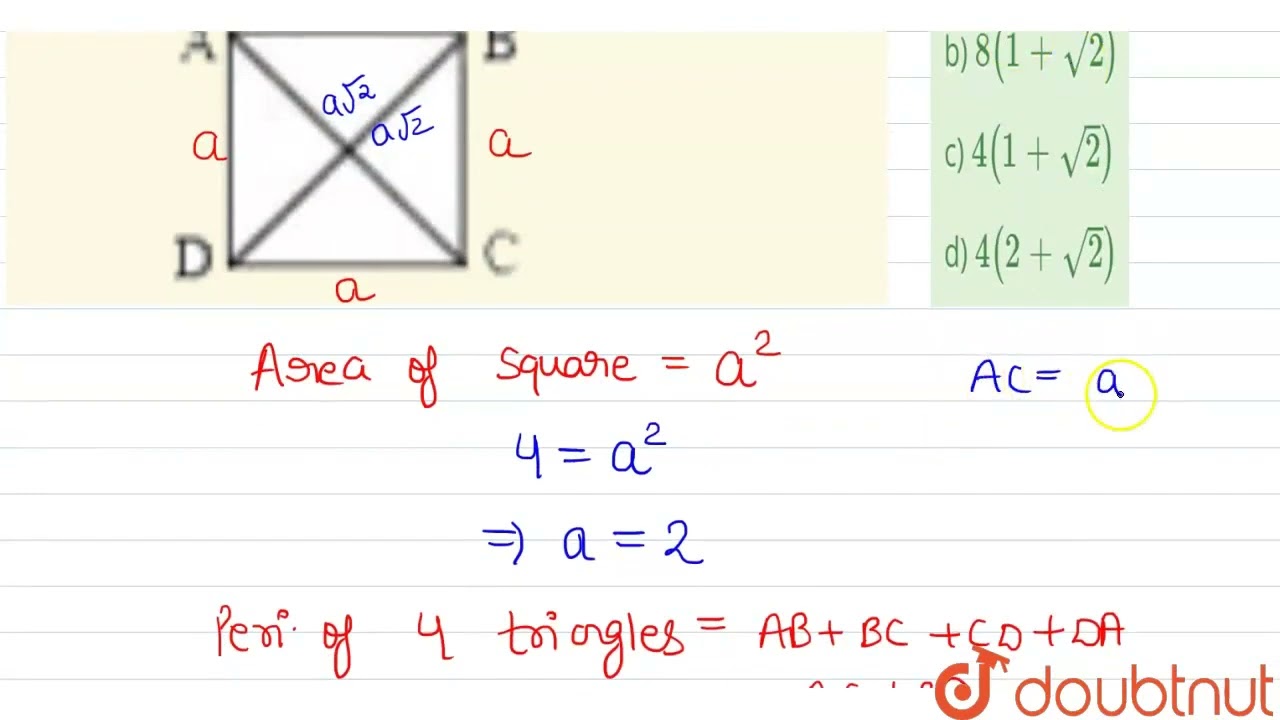 A B
a√2
a√2
a a
D C
a
b) 8(1 + √2)
c) 4(1 + √2)
d) 4(2 + √2)
Area of square = a²
4 = a²
⇒ a = 2
AC = a
Peri. of 4 triangles = AB + BC + CD + DA
doubtnut